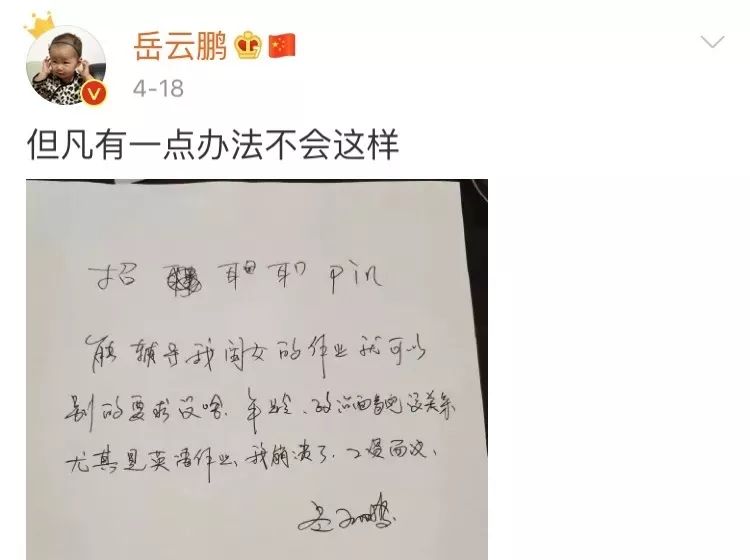 岳云鹏
4-18
但凡有一点办法不会这样
招 pin
能辅导我闺女的作业就可以
别的要求没啥、年龄、政治面貌没关系
尤其是英语作业、我崩溃了、工资面议、
岳云鹏